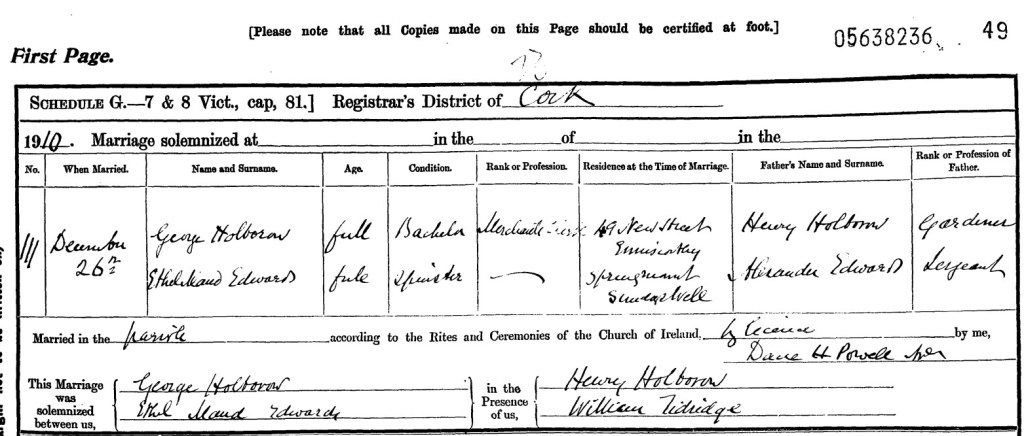 [Please note that all Copies made on this Page should be certified at foot.]
05638236 49
First Page.
SCHEDULE G.—7 & 8 Vict., cap, 81.] Registrar's District of Cork
1910. Marriage solemnized at in the of in the
No. When Married. Name and Surname. Age. Condition. Rank or Profession. Residence at the Time of Marriage. Father's Name and Surname. Rank or Profession of Father.
111 December 26th George Holborow full Bachelor Merchants Clerk 49 New Street Enniscorthy Henry Holborow Gardiner
Ethel Maud Edwards full Spinster — Springmount Sundays Well Alexander Edwards Sergeant
Married in the parish according to the Rites and Ceremonies of the Church of Ireland, by licence by me,
H Powell
This Marriage was solemnized between us, George Holborow in the Presence of us, Henry Holborow
Ethel Maud Edwards William Tidridge